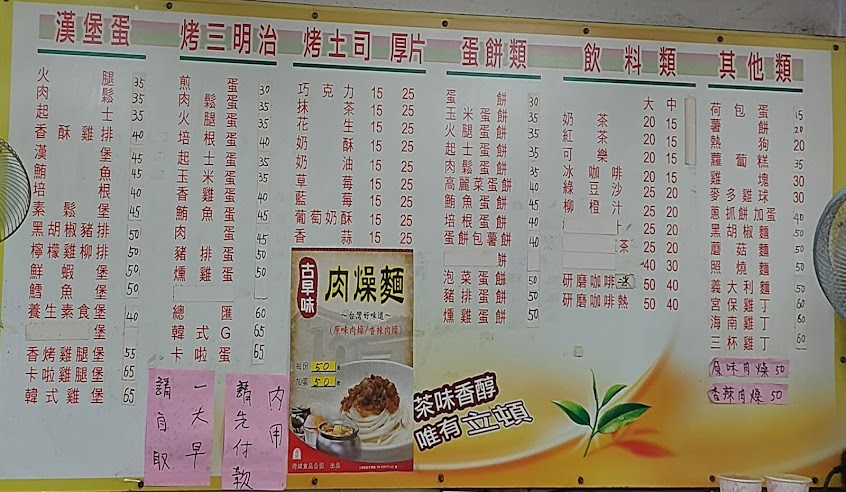 漢堡蛋
火腿 35
肉鬆 35
起士 35
香酥雞排 40
漢堡 45
鮪魚 45
培根 40
素鬆堡 45
黑胡椒豬排 50
檸檬雞柳排 50
鮮蝦堡 50
鱈魚堡 50
養生素食堡 40
堡
香烤雞腿堡 55
卡啦雞腿堡 65
韓式雞堡 65
烤三明治
煎蛋 30
肉鬆蛋 35
火腿蛋 35
培根蛋 40
起士蛋 35
玉米蛋 35
香雞蛋
鮪魚蛋 45
肉蛋 45
豬排蛋 50
燻雞蛋 50
總匯 60
韓式G 65
卡啦蛋 65
烤土司 厚片
巧克力 15 25
抹茶 15 25
花生 15 25
奶酥 15 25
奶油 15 25
草莓 15 25
藍莓 15 25
葡萄奶酥 15 25
香蒜 15 25
蛋餅類
蛋餅 30
玉米蛋餅 35
火腿蛋餅 35
起士蛋餅 35
肉鬆蛋餅 35
高麗菜蛋餅 35
鮪魚蛋餅
培根蛋餅 40
蛋餅包薯餅
餅
泡菜蛋餅 50
豬排蛋餅 50
燻雞蛋餅 50
飲料類
大 中
奶茶 20 15
紅茶 20 15
可樂 20 15
冰咖啡 25 20
綠豆沙 25 20
柳橙汁 25 20
25 20
茶 25 20
40 30
研磨咖啡冰 50 40
研磨咖啡熱 50 40
其他類
荷包蛋 15
薯餅 20
熱狗 20
蘿蔔糕 35
雞塊 30
麥多雞球 30
蔥抓餅加蛋 40
黑胡椒麵 50
蘑菇麵 50
照燒麵 50
義大利麵 50
宮保雞丁 60
海南雞丁 60
三杯雞丁 60
原味肉燥 50
香辣肉燥 50
古早味
肉燥麵
～台灣好味道～
(原味肉燥/香辣肉燥)
每份 50 元
加蛋 50 元
府城食品公司 出品
茶味香醇
唯有立頓
一大早
請自取
內用
請先付款